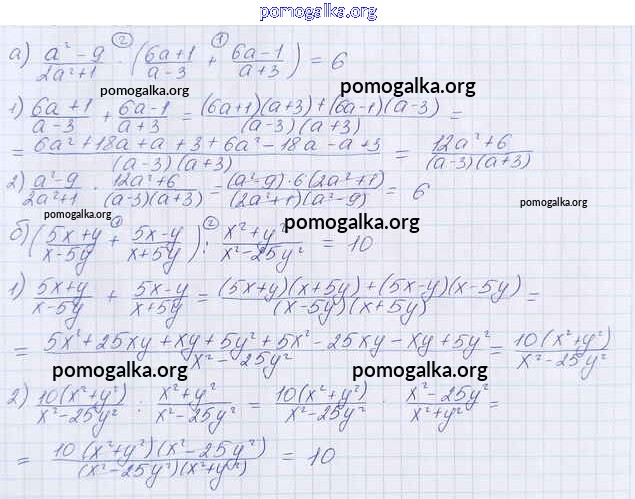 pomogalka.org
а) (a² - 9)/(2a² + 1) · ((6a + 1)/(a - 3) + (6a - 1)/(a + 3)) = 6
② ①
pomogalka.org
pomogalka.org
1) (6a + 1)/(a - 3) + (6a - 1)/(a + 3) = ((6a + 1)(a + 3) + (6a - 1)(a - 3))/((a - 3)(a + 3)) =
= (6a² + 18a + a + 3 + 6a² - 18a - a + 3)/((a - 3)(a + 3)) = (12a² + 6)/((a - 3)(a + 3))
2) (a² - 9)/(2a² + 1) · (12a² + 6)/((a - 3)(a + 3)) = ((a² - 9) · 6(2a² + 1))/((2a² + 1)(a² - 9)) = 6
pomogalka.org
pomogalka.org
pomogalka.org
б) ((5x + y)/(x - 5y) + (5x - y)/(x + 5y)) : (x² + y²)/(x² - 25y²) = 10
① ②
1) (5x + y)/(x - 5y) + (5x - y)/(x + 5y) = ((5x + y)(x + 5y) + (5x - y)(x - 5y))/((x - 5y)(x + 5y)) =
= (5x² + 25xy + xy + 5y² + 5x² - 25xy - xy + 5y²)/(x² - 25y²) = 10(x² + y²)/(x² - 25y²)
pomogalka.org
pomogalka.org
2) 10(x² + y²)/(x² - 25y²) : (x² + y²)/(x² - 25y²) = 10(x² + y²)/(x² - 25y²) · (x² - 25y²)/(x² + y²) =
= (10(x² + y²)(x² - 25y²))/((x² - 25y²)(x² + y²)) = 10